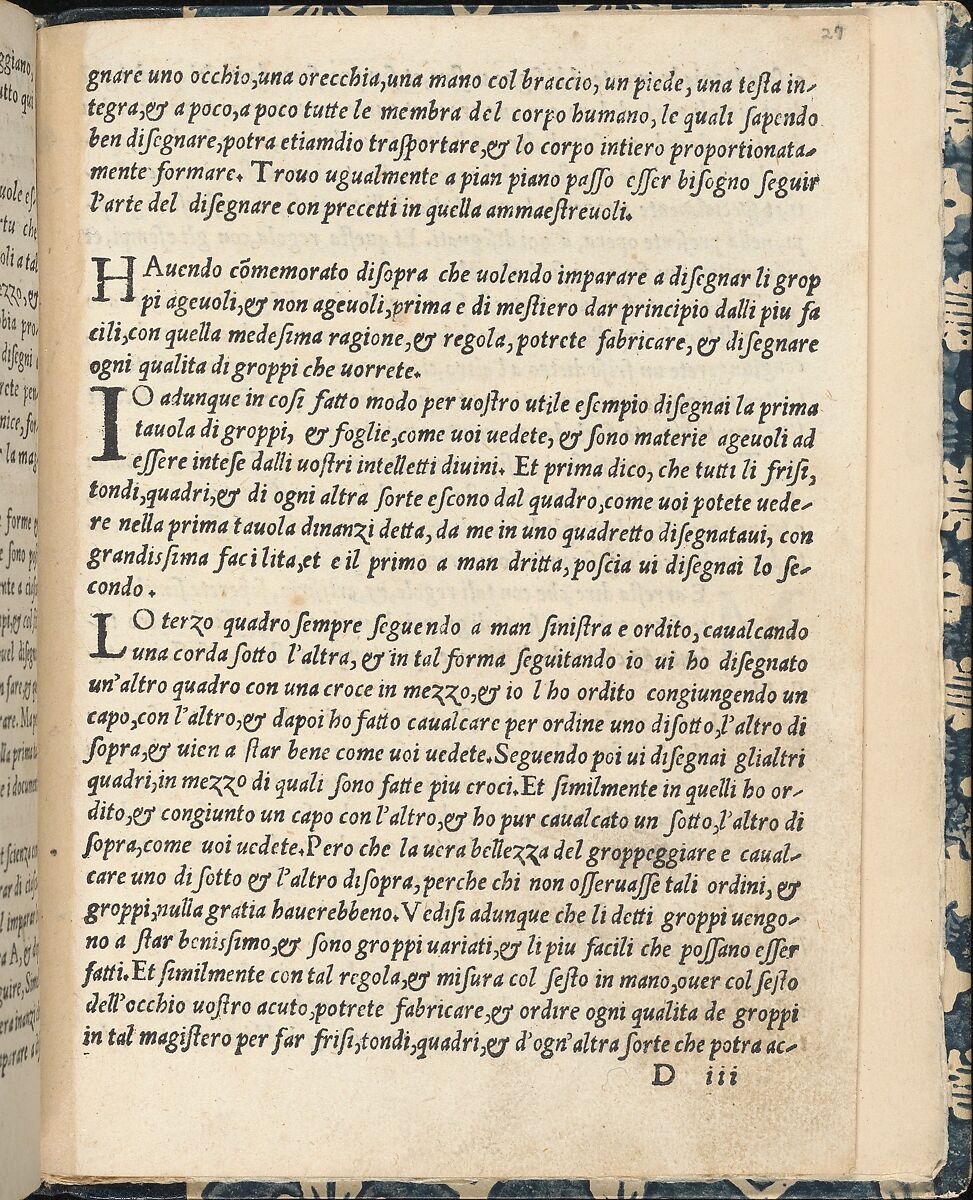 27
gnare uno occhio,una orecchia,una mano col braccio, un piede, una teſta in-
tegra,& a poco,a poco tutte le membra del corpo humano, le quali ſapendo
ben diſegnare,potra etiamdio traſportare,& lo corpo intiero proportionata-
mente formare. Trouo ugualmente a pian piano paſſo eſſer biſogno ſeguir
l'arte del diſegnare con precetti in quella ammaeſtreuoli.
HAuendo cõmemorato diſopra che uolendo imparare a diſegnar li grop
pi ageuoli,& non ageuoli,prima e di meſtiero dar principio dalli piu fa
cili,con quella medeſima ragione,& regola, potrete fabricare, & diſegnare
ogni qualita di groppi che uorrete.
IO adunque in coſi fatto modo per uoſtro utile eſempio diſegnai la prima
tauola di groppi, & foglie,come uoi uedete, & ſono materie ageuoli ad
eſſere inteſe dalli uoſtri intelletti diuini. Et prima dico, che tutti li friſi,
tondi,quadri,& di ogni altra ſorte eſcono dal quadro,come uoi potete uede-
re nella prima tauola dinanzi detta, da me in uno quadretto diſegnataui, con
grandiſſima facilita,et e il primo a man dritta, poſcia ui diſegnai lo ſe-
condo.
LO terzo quadro ſempre ſeguendo a man ſiniſtra e ordito, caualcando
una corda ſotto l'altra, & in tal forma ſeguitando io ui ho diſegnato
un'altro quadro con una croce in mezzo,& io l ho ordito congiungendo un
capo,con l'altro,& dapoi ho fatto caualcare per ordine uno diſotto,l'altro di
ſopra,& uien a ſtar bene come uoi uedete.Seguendo poi ui diſegnai glialtri
quadri,in mezzo di quali ſono fatte piu croci.Et ſimilmente in quelli ho or-
dito,& congiunto un capo con l'altro,& ho pur caualcato un ſotto,l'altro di
ſopra,come uoi uedete.Pero che la uera bellezza del groppeggiare e caual-
care uno di ſotto & l'altro diſopra, perche chi non oſſeruaſſe tali ordini, &
groppi,nulla gratia hauerebbeno.Vediſi adunque che li detti groppi uengo-
no a ſtar beniſſimo,& ſono groppi uariati,& li piu facili che poſſano eſſer
fatti.Et ſimilmente con tal regola,& miſura col ſeſto in mano,ouer col ſeſto
dell'occhio uoſtro acuto,potrete fabricare,& ordire ogni qualita de groppi
in tal magiſtero per far friſi,tondi,quadri,& d'ogn'altra ſorte che potra ac-
D iii